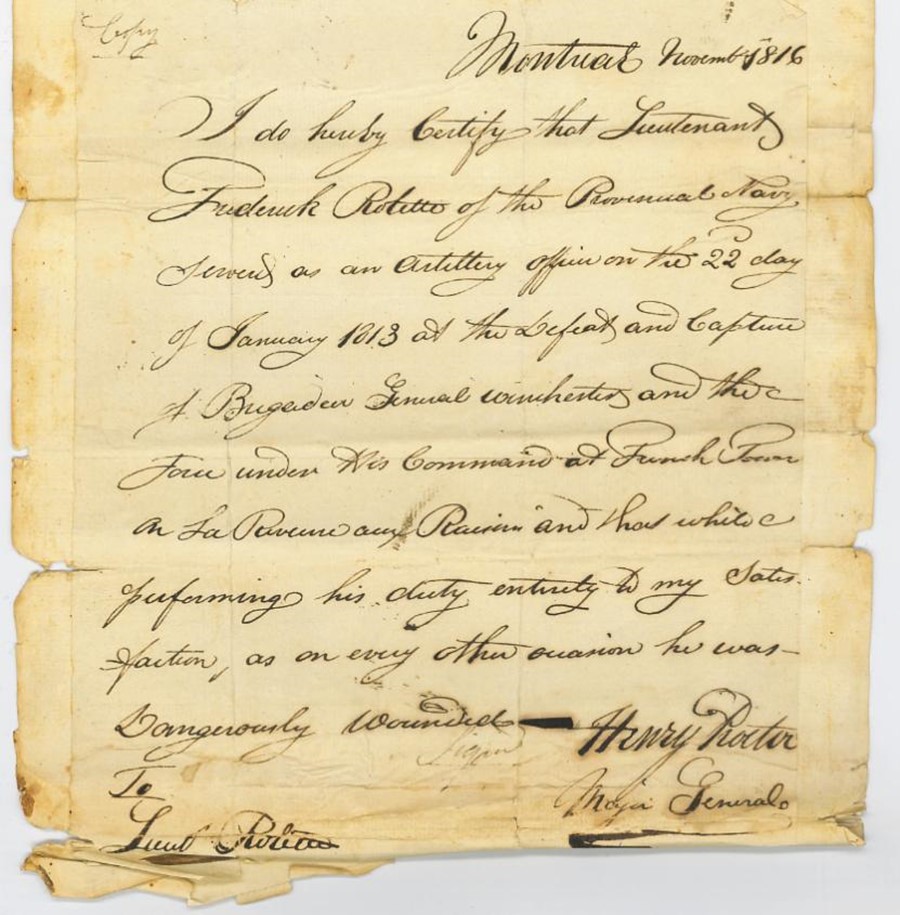 Copy
Montreal Novemb 1816
I do hereby Certify that Lieutenant
Frederick Rolette of the Provincial Navy
served as an Artillery officer on the 22 day
of January 1813 at the Defeat and Capture
of Brigadier General Winchester and the
Force under His Command at French Town
on La Riviere aux Raisin and that while
performing his duty entirely to my Satis
faction, as on every other occasion he was
Dangerously Wounded
Sign Henry Procter
Major General
To
Lieut Rolette